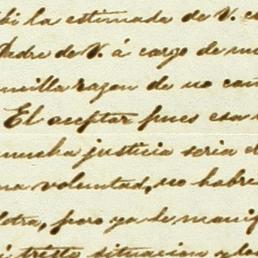 bi la estimada de V. c
Padre de V. á cargo de mi
encilla razon de no can
El aceptar pues esa
mucha justicia seria d
na voluntad, no habre
letra, pero ya le mani
triste situacion y la